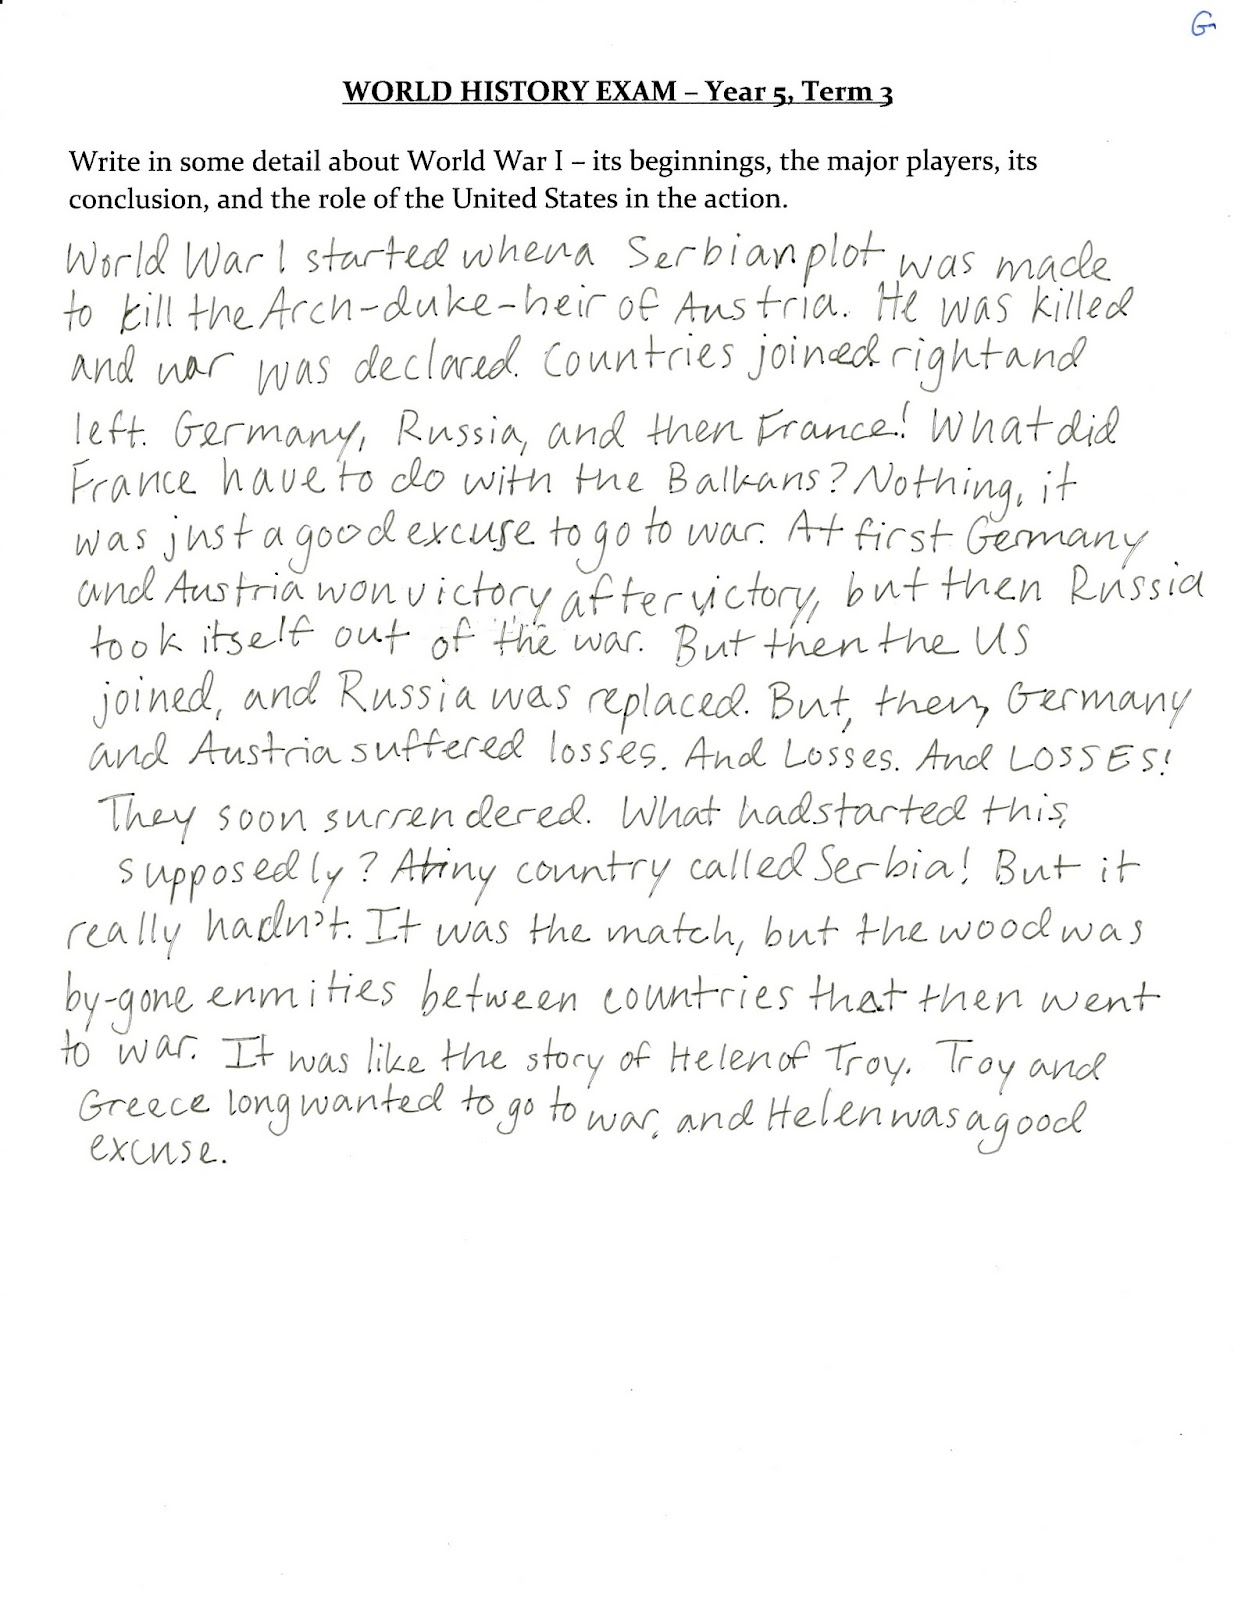 G
WORLD HISTORY EXAM – Year 5, Term 3
Write in some detail about World War I – its beginnings, the major players, its
conclusion, and the role of the United States in the action.
World War I started when a Serbian plot was made
to kill the Arch-duke-heir of Austria. He was killed
and war was declared. Countries joined right and
left. Germany, Russia, and then France! What did
France have to do with the Balkans? Nothing, it
was just a good excuse to go to war. At first Germany
and Austria won victory after victory, but then Russia
took itself out of the war. But then the US
joined, and Russia was replaced. But, then, Germany
and Austria suffered losses. And Losses. And LOSSES!
They soon surrendered. What had started this,
supposedly? A tiny country called Serbia! But it
really hadn't. It was the match, but the wood was
by-gone enmities between countries that then went
to war. It was like the story of Helen of Troy. Troy and
Greece long wanted to go to war, and Helen was a good
excuse.